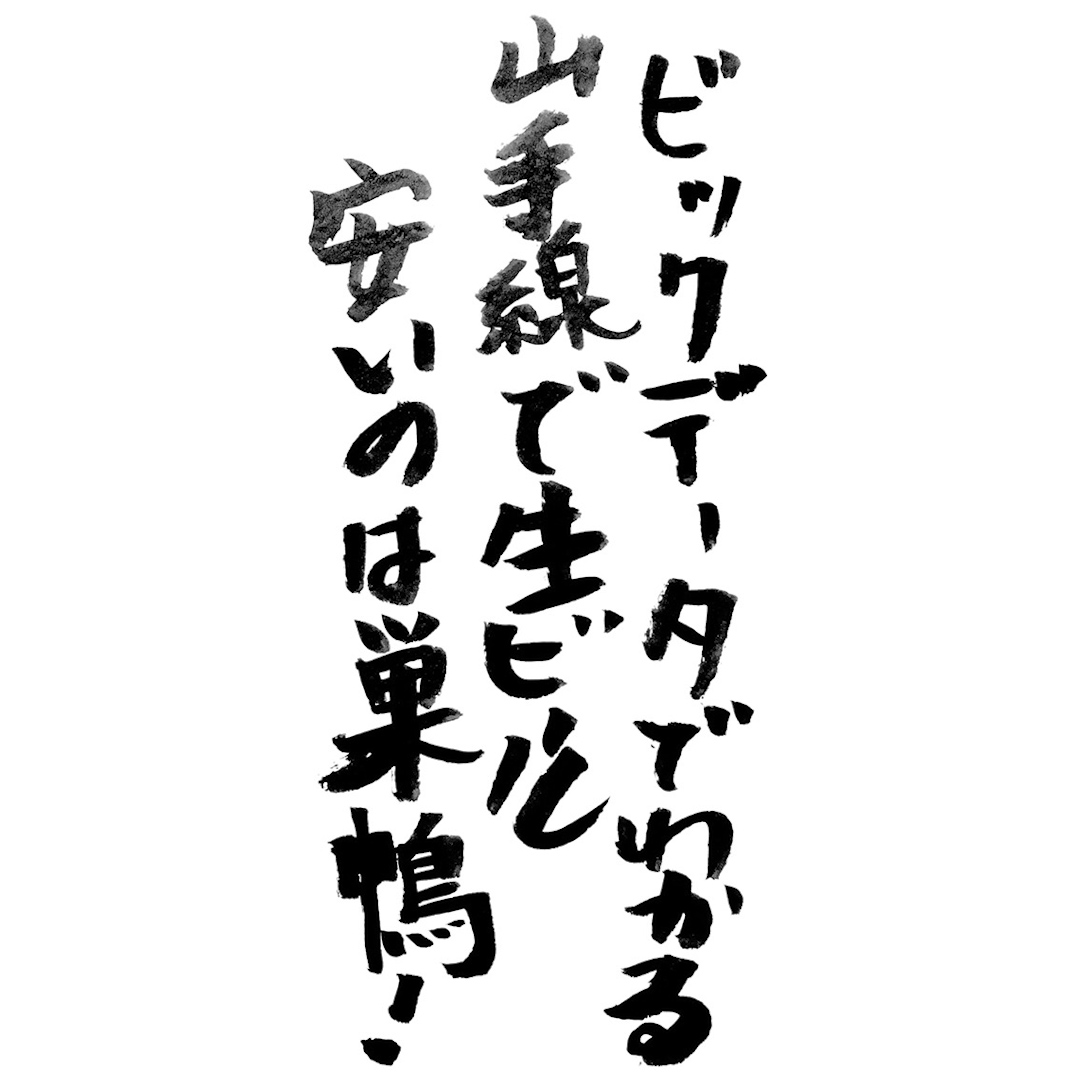 ビックデータでわかる
山手線で生ビル
安いのは巣鴨!